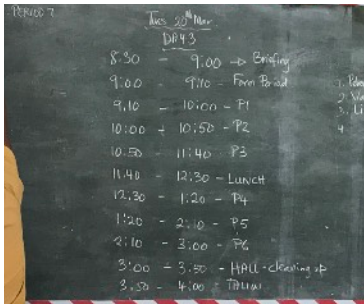 PERIOD 7
Tues 20th Mar
DAY3
8.30 - 9:00 → Briefing
9:00 - 9:10 - Form Period
9.10 - 10:00 - P1
10:00 - 10:50 - P2
10.50 - 11:40 P3
11.40 - 12:30 - LUNCH
12.30 - 1:20 - P4
1:20 - 2:10 - P5
2:10 - 3:00 - P6
3:00 - 3.50 - HALL - cleaning up
3.50 - 4:00 -
1.
2.
3. Li
4